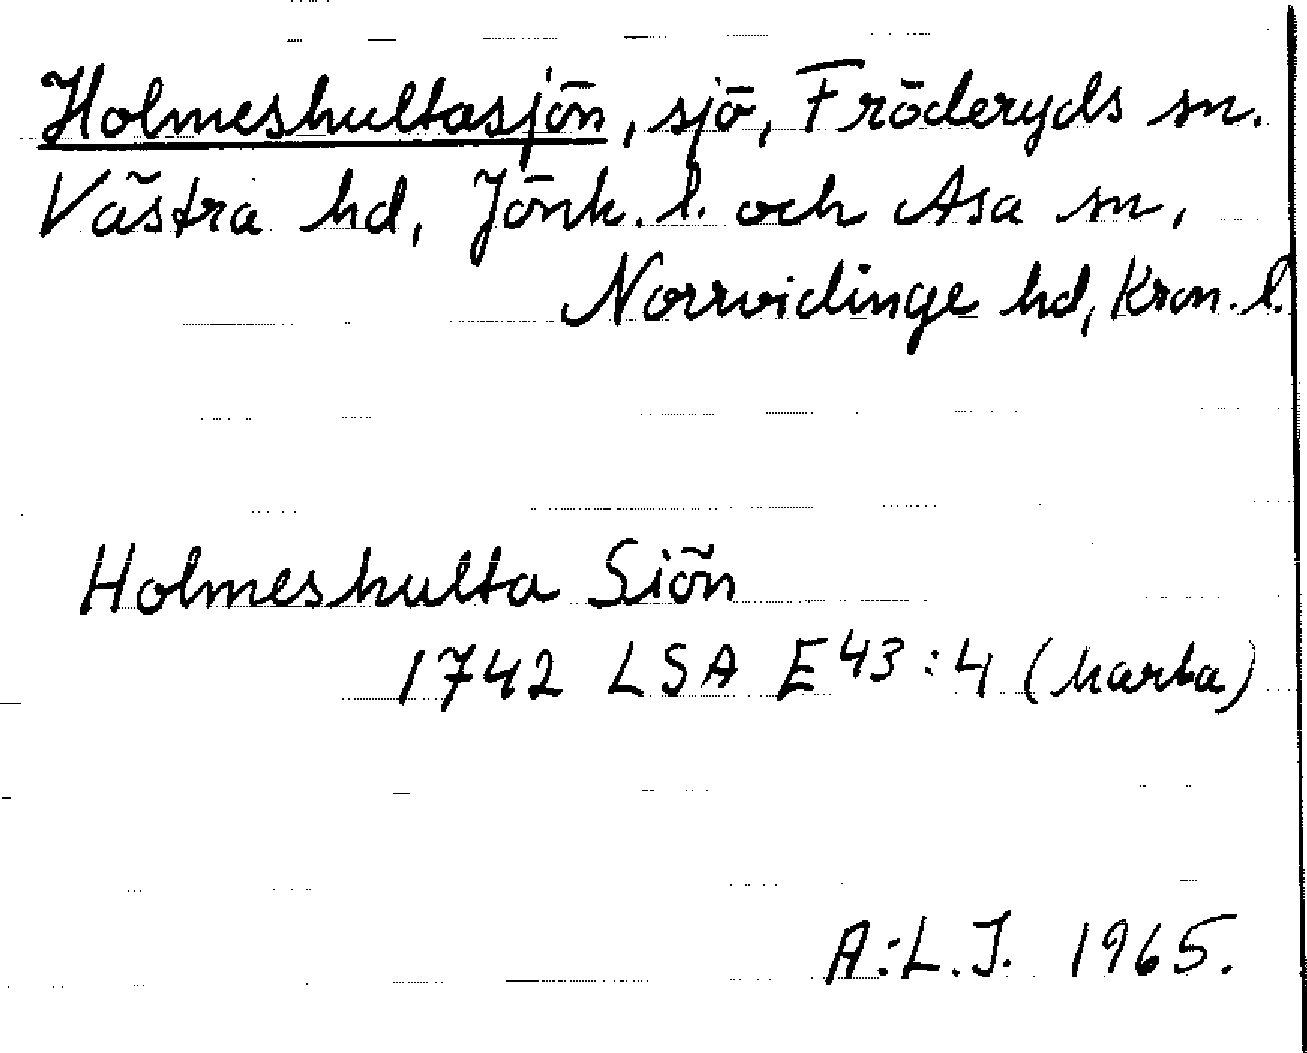 Holmeshultasjön, sjö, Fröderyds sn.
Västra hd, Jönk. l. och Asa sn,
Norrvidinge hd, Kron. l.
Holmeshulta Siön
1742 LSA E43:4 (karta)
A:L.J. 1965.